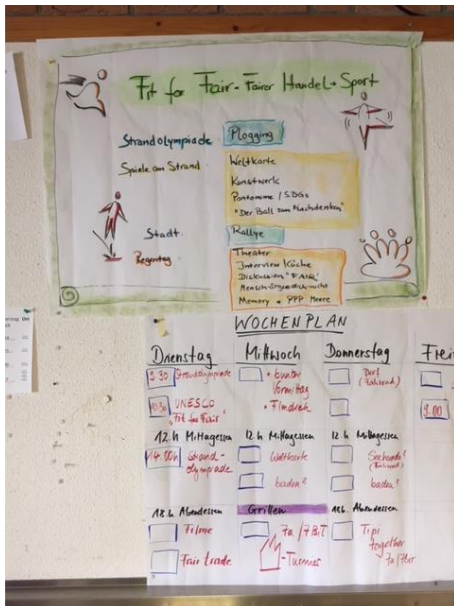 Fit for Fair - Fairer Handel + Sport
Strandolympiade
Plogging
Spiele am Strand
Weltkarte
Kunstwerk
Pantomime / SDGs
"Der Ball zum Nachdenken"
Stadt
Rallye
Regentag
Theater
Interview Küche
Diskussion "FAIR"
Mensch-ärgere-dich-nicht
Memory + PPP Meere
WOCHENPLAN
Dienstag
9.30 Strandolympiade
10.30 UNESCO
"Fit for Fair"
12.h Mittagessen
14.00h Strand-
olympiade
18.h Abendessen
Filme
Fair trade
Mittwoch
• bunter
Vormittag
• Filmdreh
12.h Mittagessen
Weltkarte
baden?
Grillen
7a/7BiT
-Turnier
Donnerstag
Dorf
(Fahrrad)
12.h Mittagessen
Seehunde!
(Fahrrad)
baden?
18h. Abendessen
Tipi
together
7a/7bit
Frei
9.00